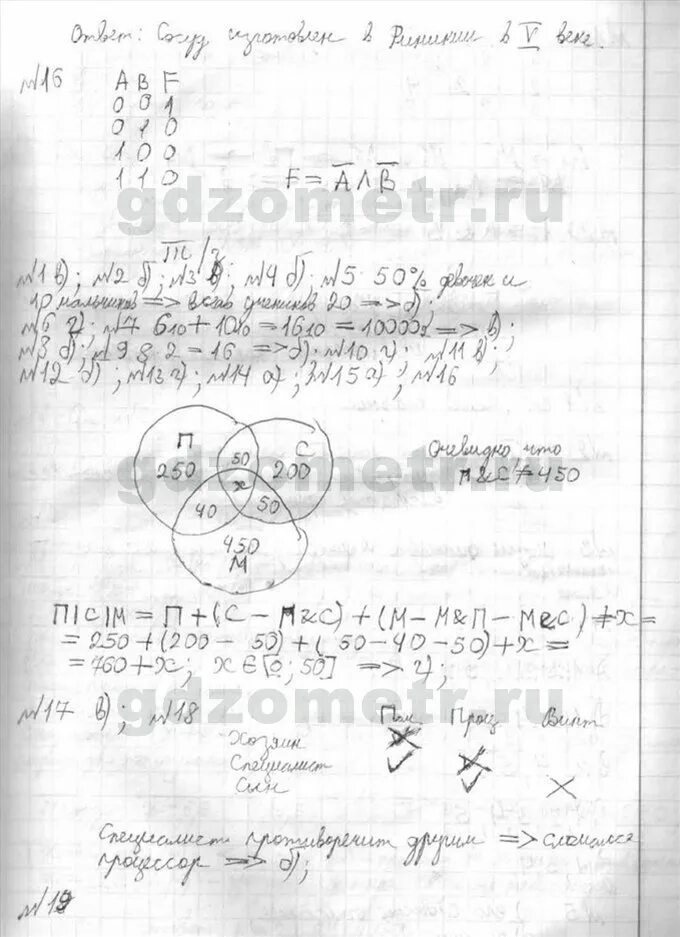 Ответ: Сосуд изготовлен в Финикии в V веке.
№16 A B F
0 0 1
0 1 0
1 0 0
1 1 0
F = A̅ ∧ B̅
gdzometr.ru
№1 в); №2 б); №3 в); №4 б); №5 50% девочек и
10 мальчиков => всего учеников 20 => б);
№6 г); №7 6₁₀ + 10₁₀ = 16₁₀ = 10000₂ => в);
№8 б); №9 8·2 = 16 => б); №10 г); №11 в);
№12 б); №13 г); №14 а); №15 г); №16
П С
250 50 200
x
40 50
450
М
Очевидно, что
M&C ≠ 450
gdzometr.ru
П|C|M = П + (C – M&C) + (M – M&П – M&C) + x =
= 250 + (200 – 50) + (50 – 40 – 50) + x =
= 760 + x; x ∈ [0; 50] => г);
gdzometr.ru
№17 в); №18
Пам. Проц. Винт
Хозяин
Специалист
Сын
Специалист противоречит другим => сломался
процессор => б);
№19